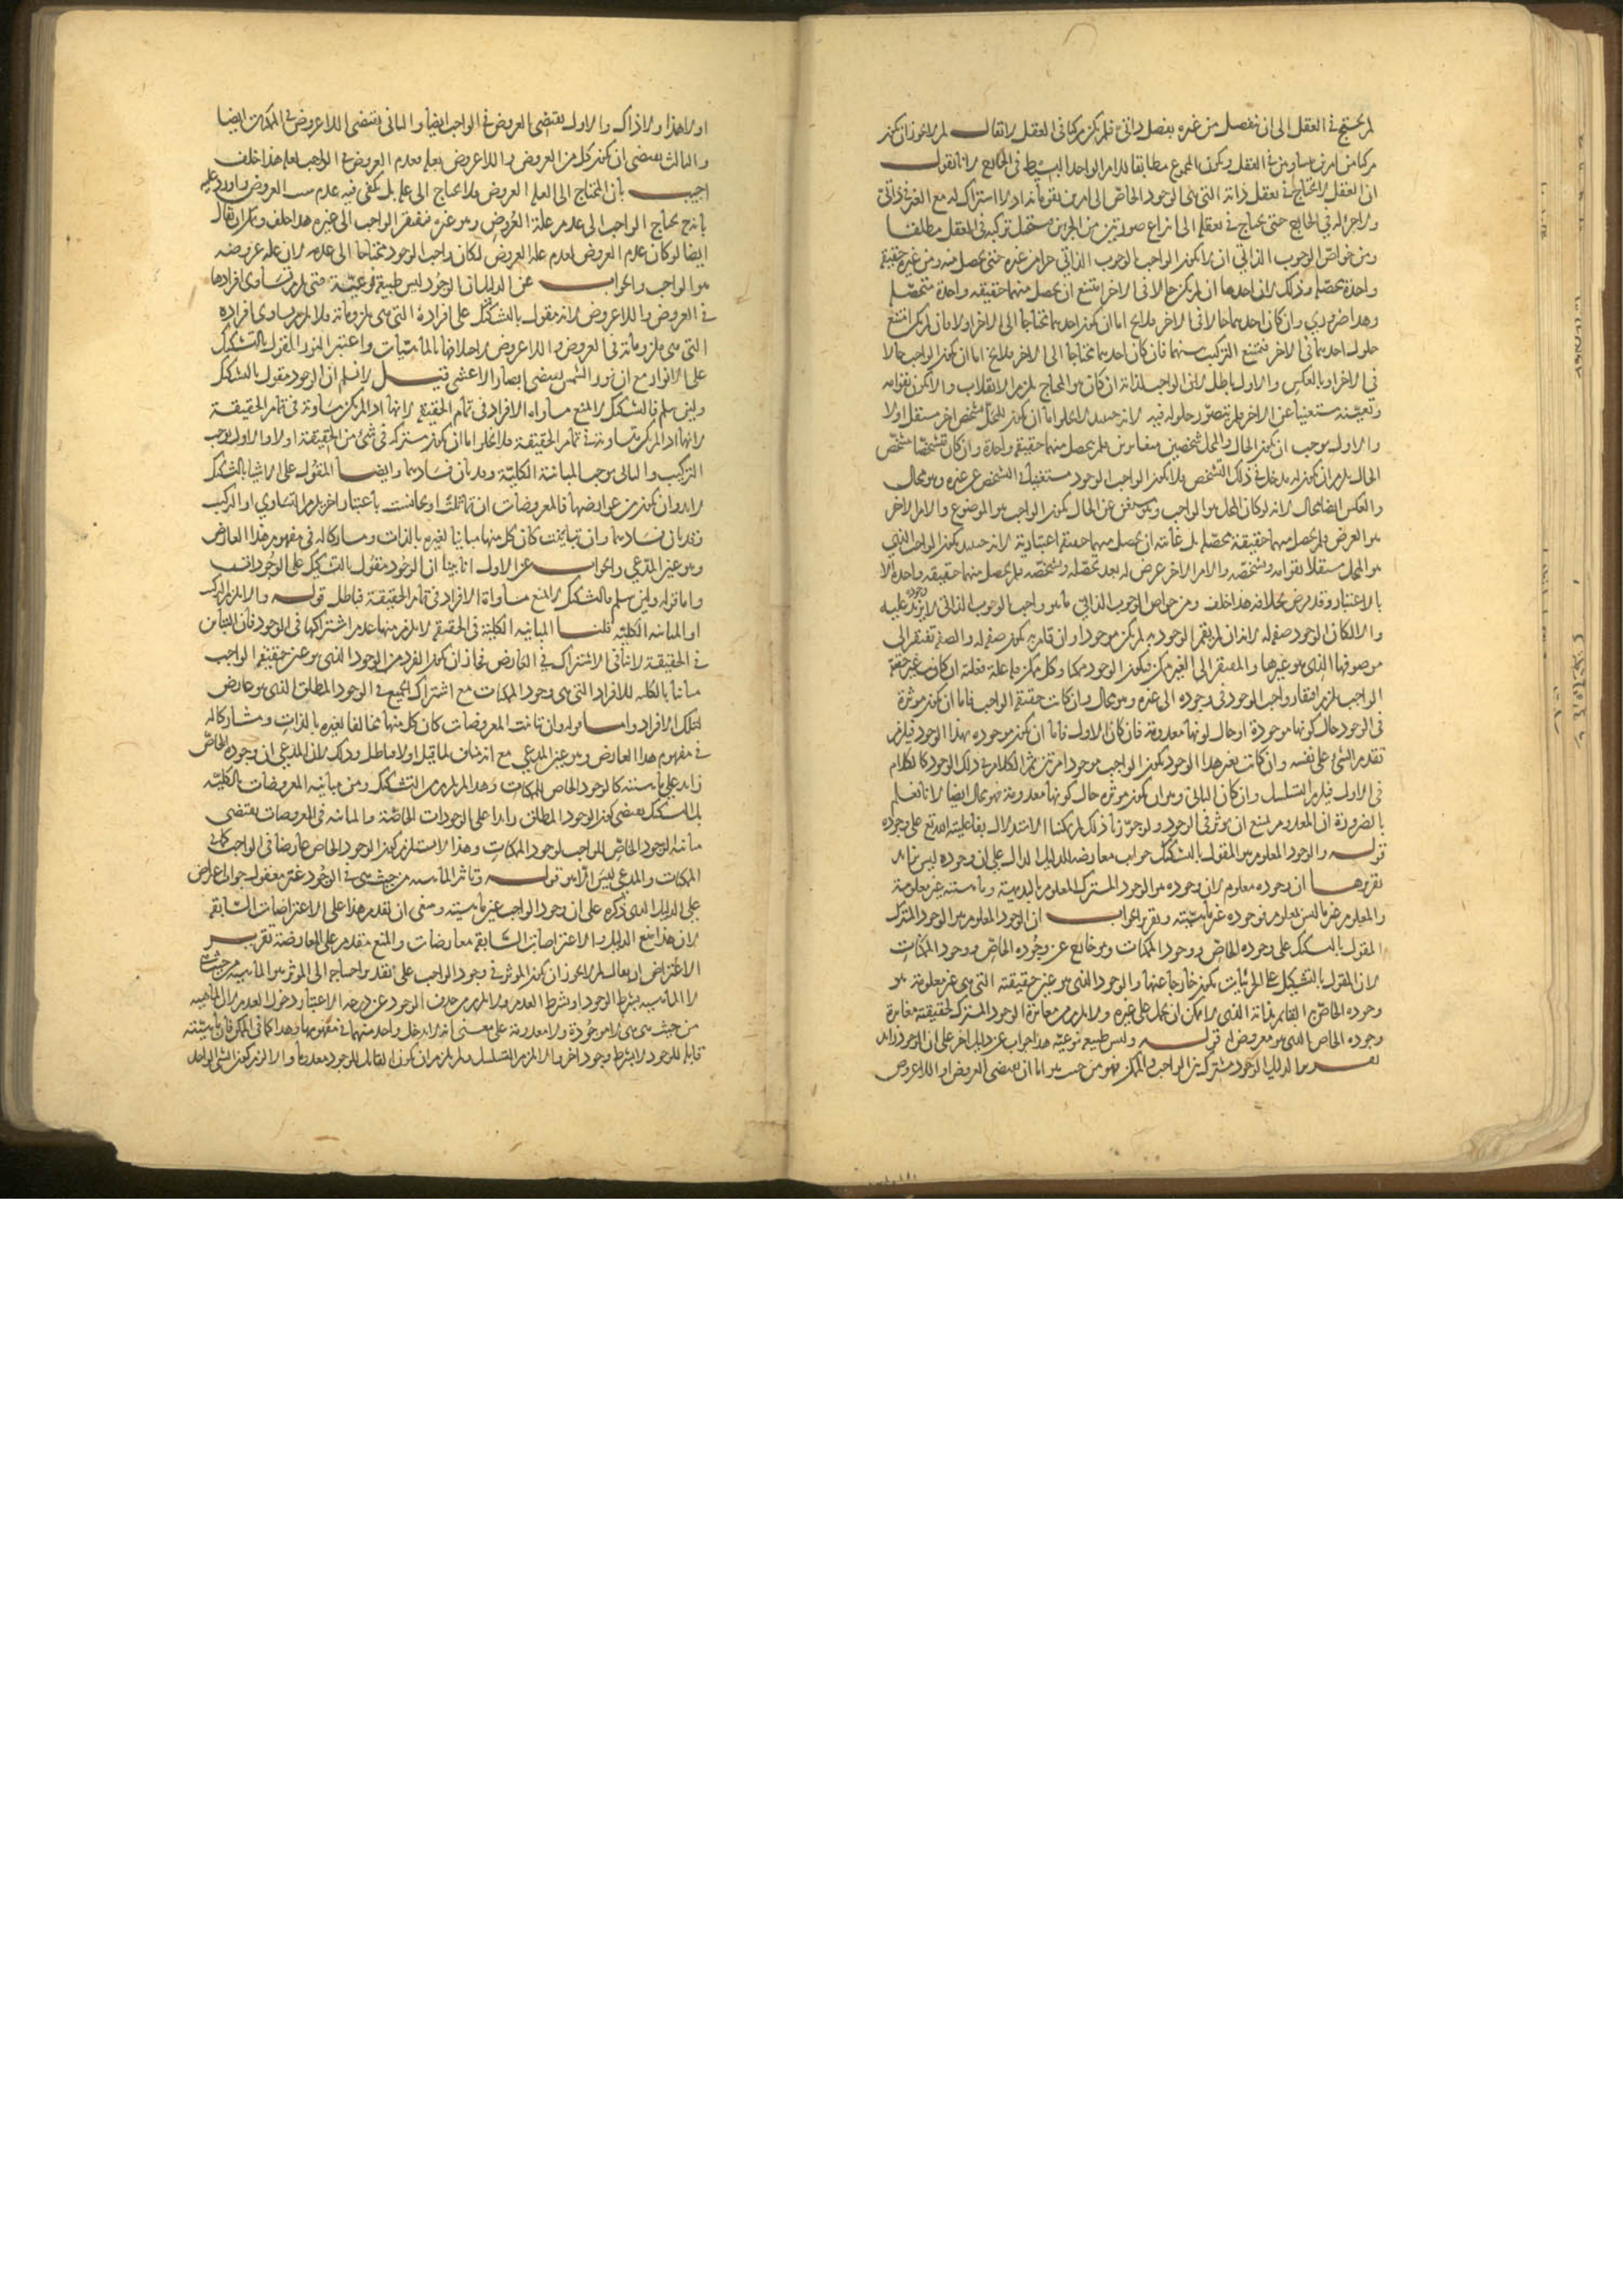 لم يحتج في العقل الى ان ينفصل من غيره بفصل ذاتي فلم يكن مركبا في العقل لا يقال لم لا يجوز ان يكون
مركبا من امرين متساويين في العقل ويكون المجموع مطابقا للامر الواحد البسيط في الخارج لانا نقول
ان العقل لا يحتاج في تعقل ذاته التي هي الوجود الخاص الى امرين يقومانه اذ لا اشتراك له مع الغير في ذاتي
ولا جزء له في الخارج حتى يحتاج في تعقله الى انتزاع صورتين من الجزئين فيستحيل تركبه في العقل مطلقا
ومن خواص الوجوب الذاتي ان لا يكون الواجب بالوجوب الذاتي جزءا من غيره حتى يحصل منه ومن غيره حقيقة
واحدة محصلة وذلك لان احدهما ان لم يكن حالا في الاخر امتنع ان يحصل منهما حقيقة واحدة متحصلة
وهذا ضروري وان كان احدهما حالا في الاخر فلا يخ اما ان يكون احدهما محتاجا الى الاخر اولا فان لم يكن امتنع
حلول احدهما في الاخر فيمتنع التركيب منهما فان كان احدهما محتاجا الى الاخر فلا يخ اما ان يكون الواجب حالا
في الاخر او بالعكس والاول باطل لان الواجب لذاته ان كان هو المحتاج يلزم الانقلاب والا يكون بقوامه
وتعينه مستغنيا عن الاخر فلم يتصور حلوله فيه لانه حينئذ لا يخلو اما ان يكون للمحل تشخص اخر مستقل اولا
والاول يوجب ان يكون الحال والمحل شخصين متغايرين فلم يحصل منهما حقيقة واحدة وان كان تشخصه بتشخص
الحال يلزم ان يكون له مدخل في ذلك التشخص فلا يكون الواجب الوجود مستغنيا في التشخص عن غيره وهو محال
والعكس ايضا محال لانه لو كان المحل هو الواجب وهو مستغن عن الحال يكون الواجب هو الموضوع والامر الاخر
هو العرض فلم يحصل منهما حقيقة محصلة بل غايته ان يحصل منهما حقيقة اعتبارية لانه حينئذ يكون الواجب الذي
هو المحل مستقلا بقوامه وتشخصه والامر الاخر عرض له بعد تحصله وتشخصه فلم يحصل منهما حقيقة واحدة الا
بالاعتبار وقد فرض بخلافه هذا خلف ومن خواص الوجوب الذاتي ما هو واجب الوجوب الذاتي لا يزيد وجوده عليه
والا لكان الوجود صفة له لانه ان لم يقم الوجود به لم يكن موجودا وان قام به يكون صفة له والصفة تفتقر الى
موصوفها الذي هو غيرها والمفتقر الى الغير ممكن فيكون الوجود ممكنا وكل ممكن فله علة فعلته ان كان غير حقيقة
الواجب يلزم افتقار واجب الوجود في وجوده الى غيره وهو محال وان كانت حقيقة الواجب فاما ان يكون مؤثرة
في الوجود حال كونها موجودة او حال كونها معدومة فان كان الاول فاما ان يكون موجودة بهذا الوجود فيلزم
تقدم الشئ على نفسه وان كانت بغير هذا الوجود يكون الواجب موجودا مرتين ثم الكلام في ذلك الوجود كالكلام
في الاول فيلزم التسلسل وان كان الثاني وهو ان يكون مؤثرة حال كونها معدومة فهو محال ايضا لانا نعلم
بالضرورة ان المعدوم يمتنع ان يؤثر في الوجود ولو جوزنا ذلك لم يمكنا الاستدلال بفاعلية الله تع على وجوده
قوله والوجود المعلوم هو المقول بالتشكيك جواب معارضة للدليل الدال على ان وجوده ليس بزائد
تقريرها ان وجوده معلوم لان وجوده هو الوجود المشترك المعلوم بالبديهة وماهيته غير معلومة
والمعلوم غير ما ليس بمعلوم فوجوده غير ماهيته وتقرير الجواب ان الوجود المعلوم هو الوجود المشترك
المقول بالتشكيك على وجوده الخاص ووجود الممكنات وهو خارج عن وجوده الخاص ووجود الممكنات
لان المقول بالتشكيك على الجزئيات يكون خارجا عنها والوجود الذي هو عين حقيقته التي هي غير معلومة هو
وجوده الخاص القائم بذاته الذي لا يمكن ان يحمل على غيره ولا يلزم من مغايرة الوجود المشترك لحقيقته مغايرة
وجوده الخاص الذي هو معروض له قوله وليس طبيعة نوعية هذا جواب عن دليل اخر على ان الوجود زائد
تقرير هذا الدليل الوجود مشترك بين الواجب والممكن فهو من حيث هو اما ان يقتضي العروض او اللاعروض
او لا هذا ولا ذاك والاول يقتضي العروض في الواجب ايضا والثاني يقتضي اللاعروض في الممكنات ايضا
والثالث يقتضي ان يكون كل من العروض واللاعروض بعلة فعدم العروض في الواجب بعلة هذا خلف
اجيب بان المحتاج الى العلة العروض فلا يحتاج الى علة بل يكفي فيه عدم سبب العروض واورد عليه
بانه ح يحتاج الواجب الى عدم علة العروض وهو غيره فيفتقر الواجب الى غيره هذا خلف
ايضا لو كان عدم العروض لعدم علة العروض لكان واجب الوجود محتاجا الى عدمه لان علة عروضه
هو الواجب والجواب عن الدليل ان الوجود ليس طبيعة نوعية حتى يلزم تساوي افرادها
في العروض واللاعروض لانه مقول بالتشكيك على افراده التي هي ملزوماته فلا يلزم تساوي افراده
التي هي ملزوماته في العروض واللاعروض لاختلافها بالماهيات واعتبر النور المقول بالتشكيك
على الانوار مع ان نور الشمس يقتضي ابصار الاعشى قيل لا نسلم ان الوجود مقول بالتشكيك
ولئن سلم فالتشكيك لا يمنع مساواة الافراد في تمام الحقيقة لانها اذا لم يكن متساوية في تمام الحقيقة
لانها اذا لم يكن متساوية في تمام الحقيقة فلا يخلو اما ان يكون مشتركة في شئ من الحقيقة اولا والاول يوجب
التركيب والثاني يوجب المباينة الكلية وقد بان فسادهما وايضا المقول على الاشيا بالتشكيك
لا بد وان يكون من عوارضها فالمعروضات ان تماثلت او تجانست باعتبار اخر يلزم التساوي او التركيب
وقد بان فسادهما وان تباينت كان كل منها مباينا لغيره بالذات ومشاركا له في مفهوم هذا العارض
وهو عين المدعي والجواب عن الاول انا بينا ان الوجود مقول بالتشكيك على الوجودات
واما قوله ولئن سلم بالتشكيك لا يمنع مساواة الافراد في تمام الحقيقة فباطل قوله والا يلزم التركيب
او المباينة الكلية قلنا المباينة الكلية في الحقيقة لا يلزم منها عدم اشتراكها في الوجود فان التباين
في الحقيقة لا ينافي الاشتراك في العارض فجاز ان يكون الفرد من الوجود الذي هو عين حقيقة الواجب
مباينا بالكلية للافراد التي هي وجود الممكنات مع اشتراك الجميع في الوجود المطلق الذي هو عارض
لتلك الافراد واما قوله وان تباينت المعروضات كان كل منها مخالفا لغيره بالذات ومشاركا له
في مفهوم هذا العارض وهو عين المدعي مع انه مناف لما قيل اولا فباطل وذلك لان المدعي ان وجوده الخاص
زائد على ماهيته كالوجود الخاص للممكنات وهذا لم يلزم من التشكيك ومن مباينة المعروضات بالكلية
بل التشكيك يقتضي كون الوجود المطلق زائدا على الوجودات الخاصة والمباينة في المعروضات يقتضي
مباينة الوجود الخاص للواجب لوجود الممكنات وهذا لا يستلزم كون الوجود الخاص عارضا في الواجب كما في
الممكنات والمدعي ليس الا هو قوله وتاثير الماهية من حيث هي في الوجود غير معقول جواب اعتراض
على الدليل الذي ذكره على ان وجود الواجب عين ماهيته وينبغي ان يقدم هذا على الاعتراضات السابقة
لان هذا منع الدليل والاعتراضات السابقة معارضات والمنع متقدم على المعارضة تقرير
الاعتراض ان يقال لم لا يجوز ان يكون المؤثر في وجود الواجب على تقدير احتياجه الى المؤثر هو الماهية من حيث هي
لا الماهية بشرط الوجود او بشرط العدم ولا يلزم من حذف الوجود عن درجة الاعتبار دخول العدم لان الماهية
من حيث هي هي لا موجودة ولا معدومة على معنى انه لا يدخل واحد منهما في مفهومها وهذا كما في الممكن فان ماهيته
قابلة للوجود لا بشرط وجود اخر والا يلزم التسلسل ولم يلزم ان يكون القابل للوجود معدوما والا لزم كون الشئ الواحد